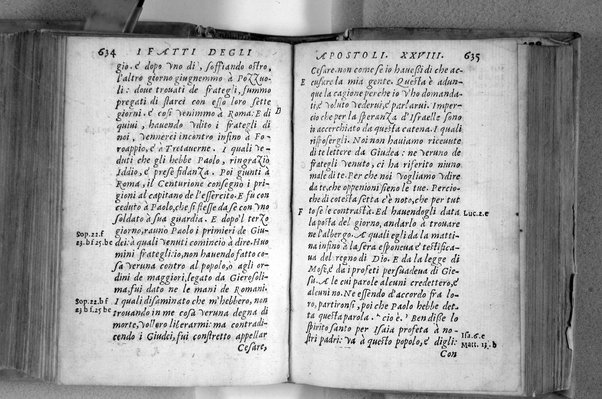 634 I FATTI DEGLI
gio. è dopo vno dì, soffiando ostro,
l'altro giorno giugnemmo à Pozzuo-
li: doue trouati de frategli, summo
pregati di starci con esso loro sette
giorni. è così venimmo à Roma: E di
quiui, hauendo vdito i frategli di
noi, vennerci incontro insino à Fo-
roappio, è à Tretauerne. i quali ve-
duti che gli hebbe Paolo, ringraziò
Idaio, è prese fidanza. Poi giunti à
Roma, il Centurione consegnò i pri-
gioni al capitano dell'essercito. E fu con
ceduto à Paolo, che si stesse da se con vno
soldato à sua guardia. E dopo'l terzo
giorno, raunò Paolo i primieri de Giu-
dei: à quali venuti cominciò à dire. Huo
mini frategli: io, non hauendo fatto co-
sa veruna contro al popolo, ò agli or-
dini de maggiori, legato da Gierosoli-
ma, fui dato ne le mani de Romani.
I quali disaminato che m'hebbero, non
trouando in me cosa veruna degna di
morte, vollero liberarmi: ma contradi-
cendo i Giudei, fui constretto appellar
Cesare,
D
Sop. 22. f
23. b f 25. b c
Sop. 22. b f
23 b f. 25. b c
APOSTOLI. XXVIII. 635
Cesare. non come se io hauessi di che ac-
cusare la mia gente. Questa è adun-
que la cagione perche io v'ho domanda-
ti, è voluto vederui, è parlarui. Imper-
cio che per la speranza d'Israelle sono
io accerchiato da questa catena. I quali
risposergli. Noi non hauiamo riceuute
di te lettere da Giudea: ne veruno de
frategli venuto, ci ha riferito niuno
male di te. Per che noi vogliamo vdire
da te, che oppenioni sieno le tue. Percio-
che di cotesta setta c'è noto, che per tut
to se le contrastà. Ed hauendogli data
la posta del giorno, andarlo à trouare
ne l'albergo. A quali egli da la matti-
na insino à la sera esponeua è testifica-
ua del regno di Dio. E da la legge di
Mosè, è da i profeti persuadeua di Gie-
su. A le cui parole alcuni credettero, è
alcuni no. Ne essendo d'accordo fra lo-
ro, partironsi, poi che Paolo hebbe det-
ta questa parola. cio è. Ben disse lo
spirito santo per Isaia profeta à no-
stri padri: va à questo popolo, è digli:
Con
E
F
Luc. 2. e
Isa. 6. c
Matt. 13. b